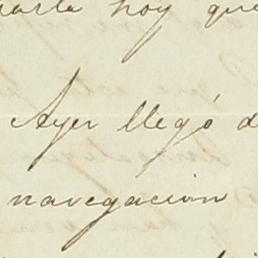 hoy que
Ayer llegó d
navegacion